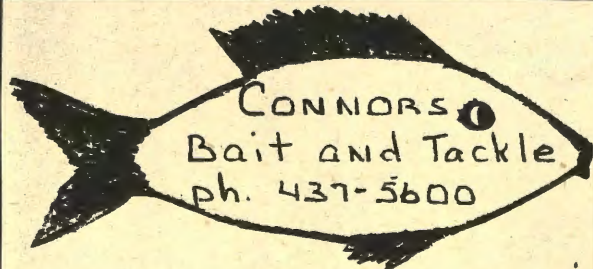 CONNORS
Bait and Tackle
ph. 437-5600